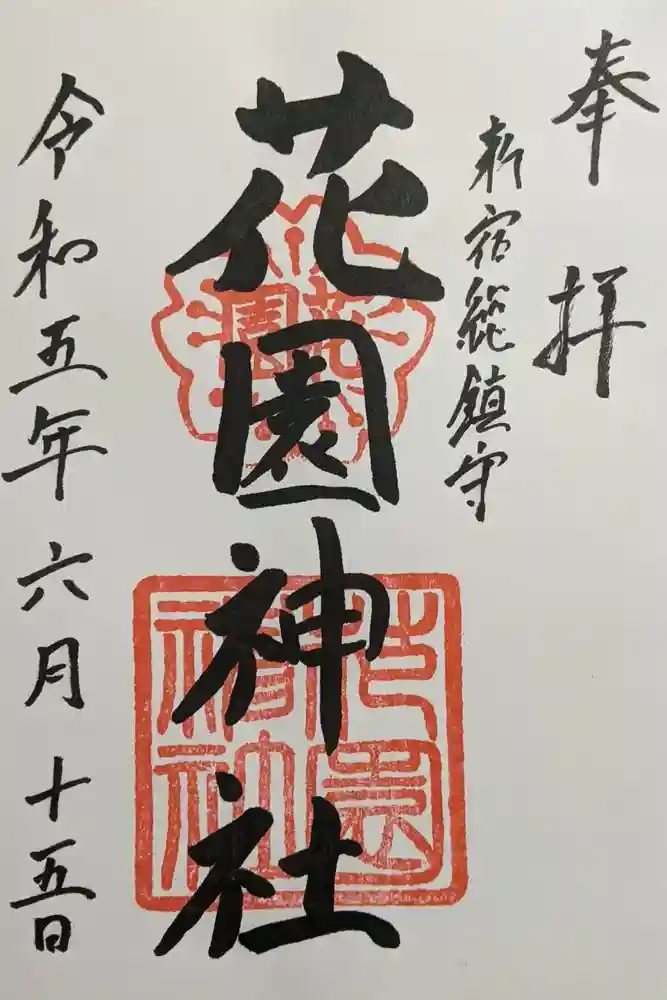 奉拝
新宿総鎮守
花園神社
花園
花園神社
令和五年六月十五日